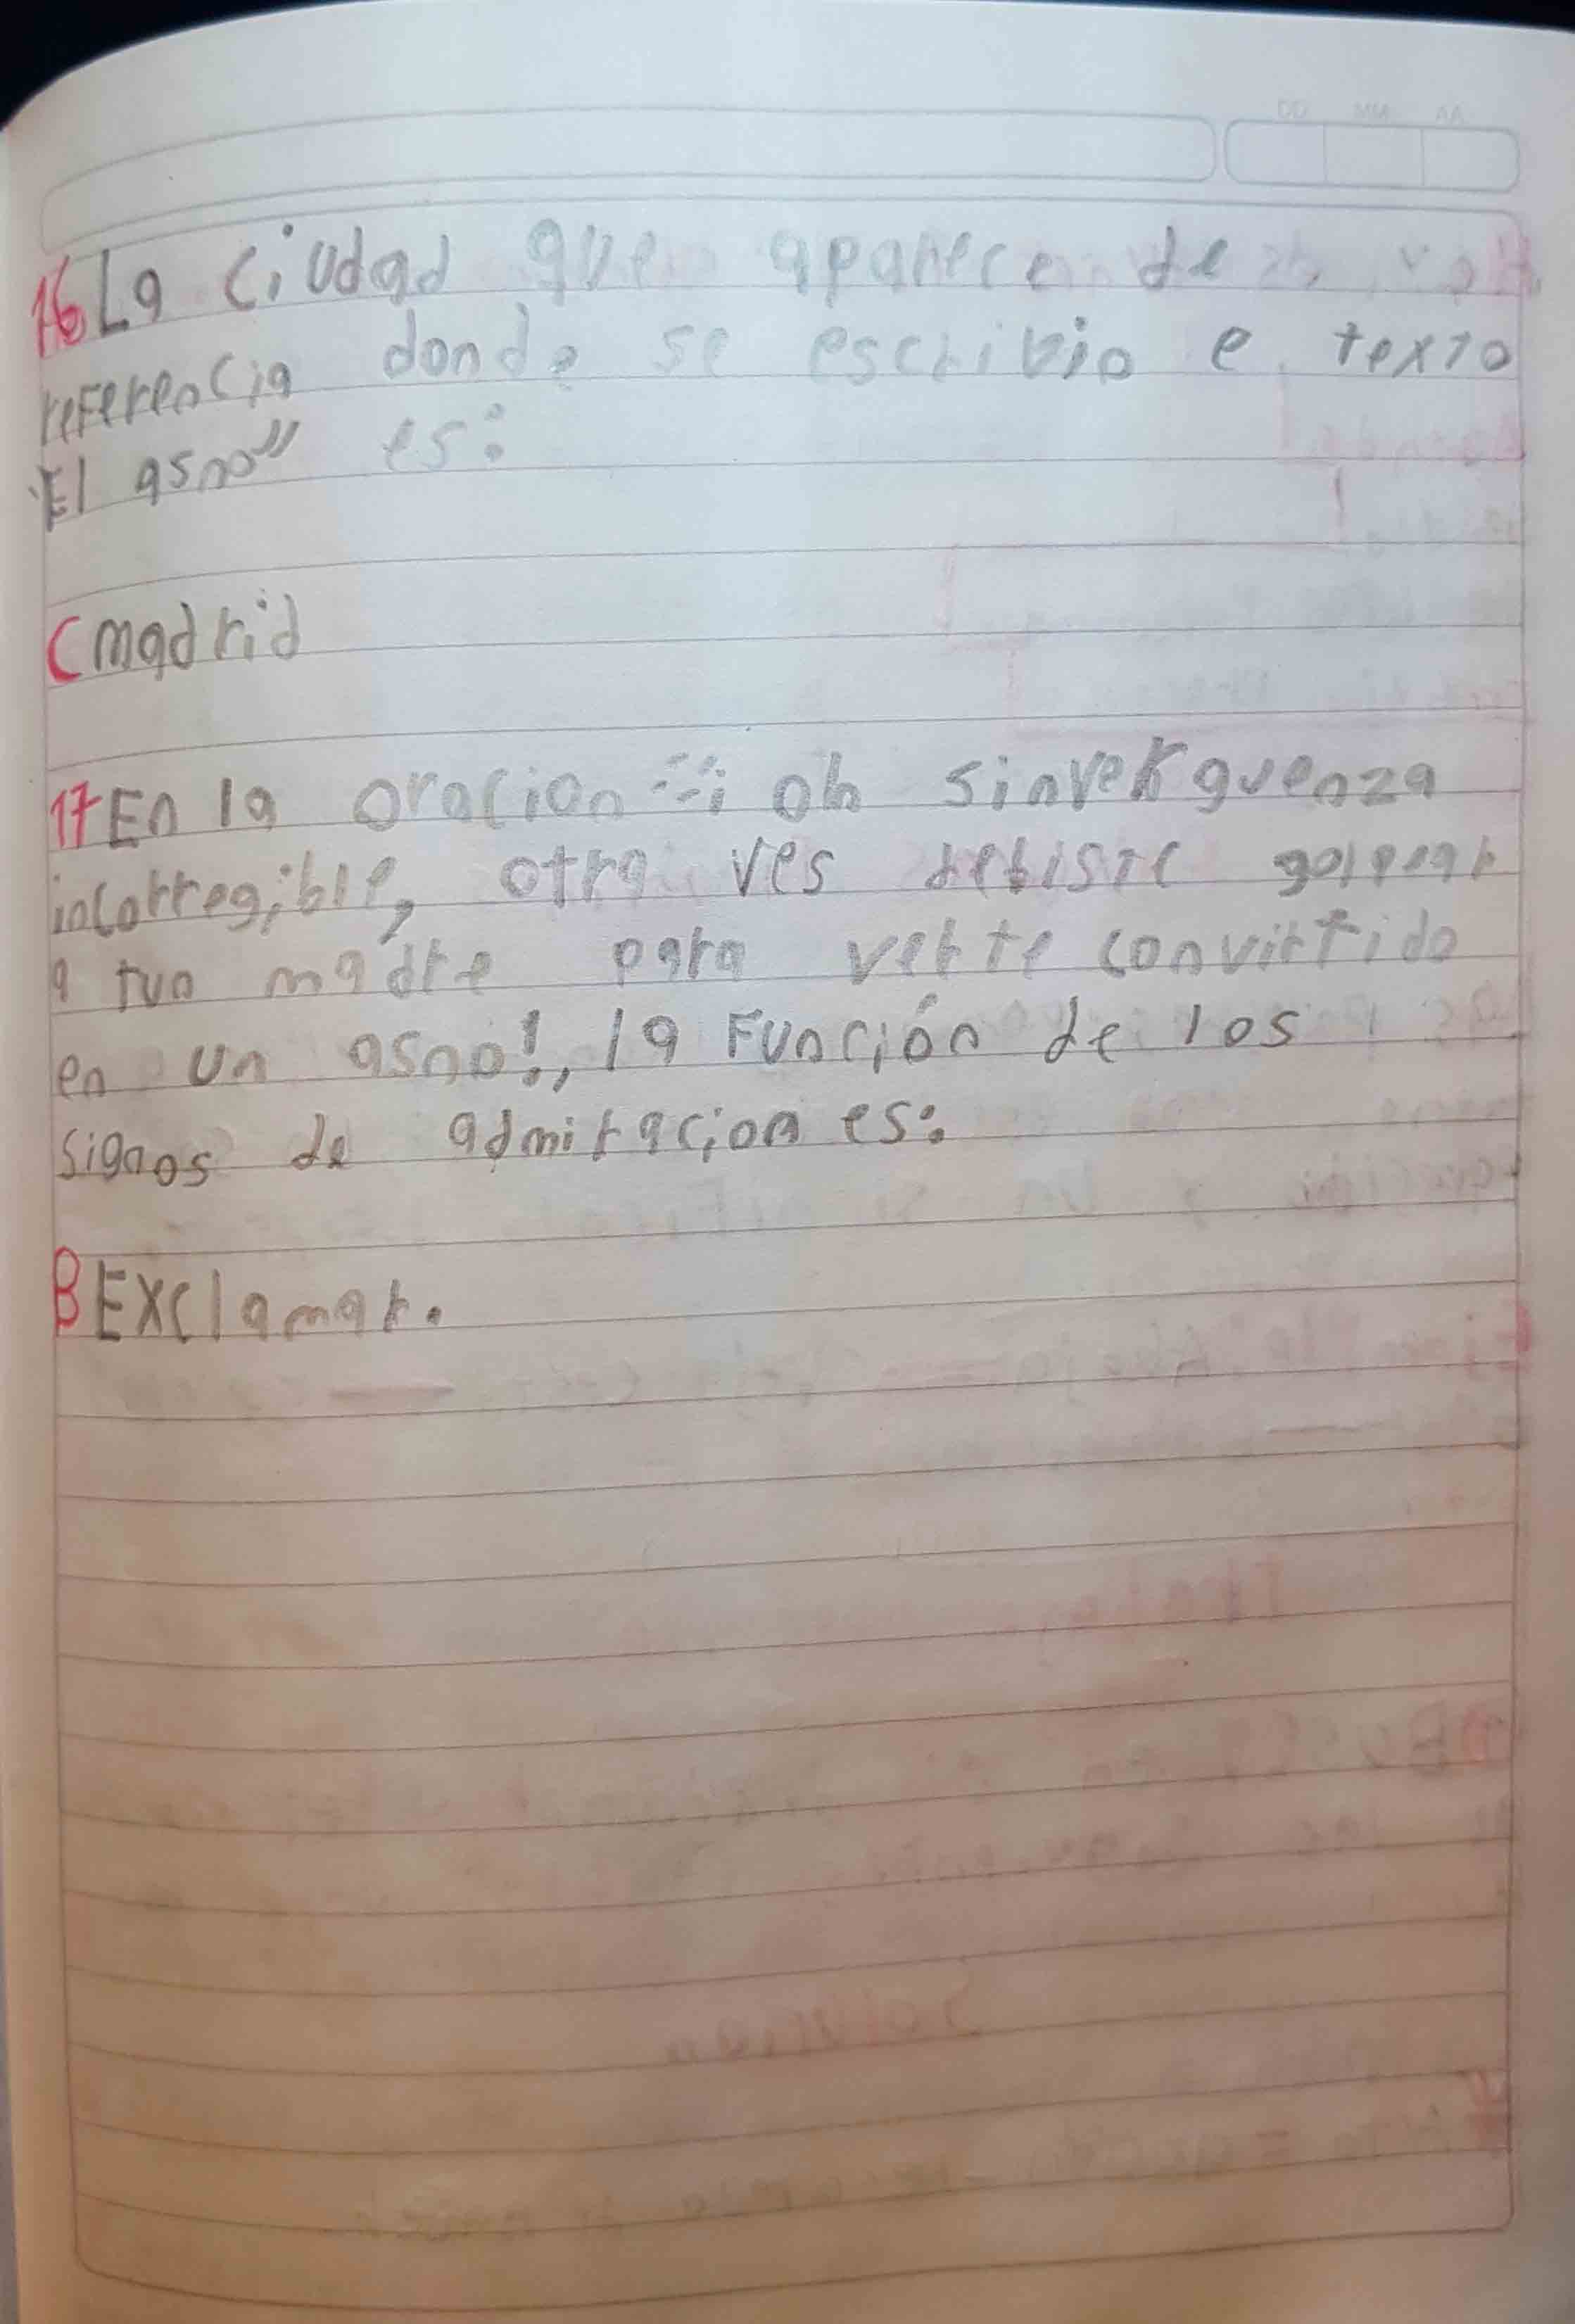 DD MM AA
16 La ciudad que aparece de
referencia donde se escrivio e texto
"El asno" es:
C madrid
17 En la oracion "¡oh sinverguenza
incorregible, otra ves debiste golpear
a tun madre para verte convirtido
en un asno!, la Función de los
signos de admiracion es:
B Exclamar.